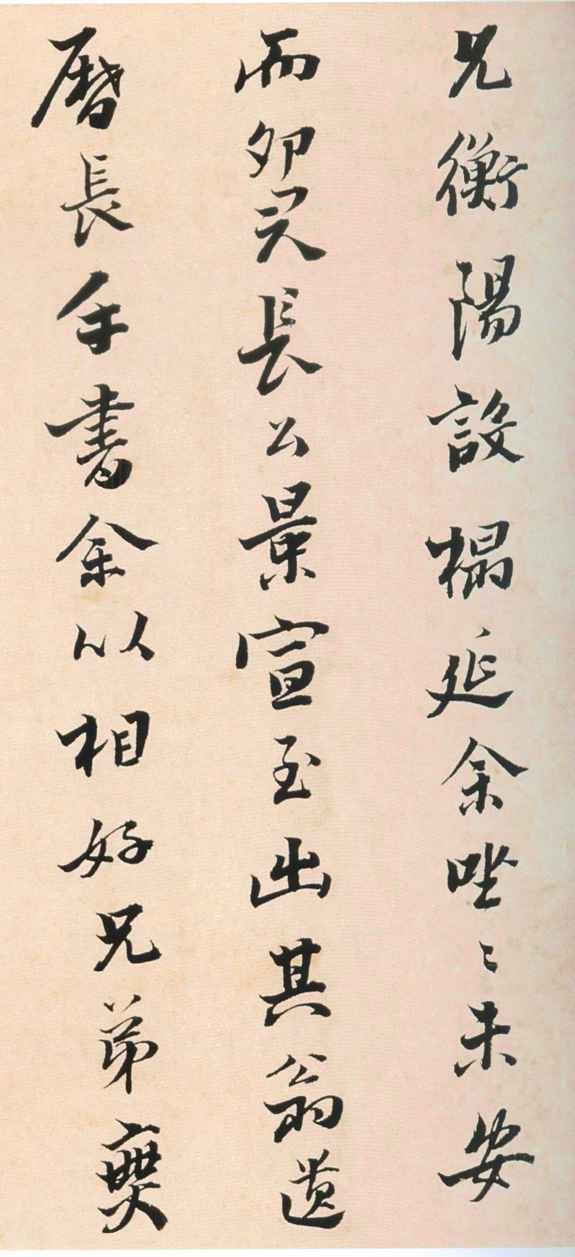 兄衡陽設榻延余坐〻未安
而卯長公景宣至出其翁道
暦長手書余以相好兄弟